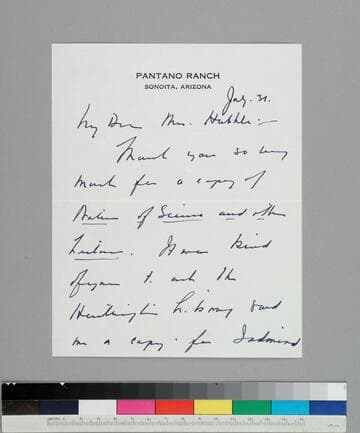 PANTANO RANCH
SONOITA, ARIZONA
July. 31.
My Dear Mrs. Hubble:-
Thank you so very
much for a copy of
Nature of Science and other
Lectures. It was kind
of you to ask the
Huntington Library send
me a copy. for I admired